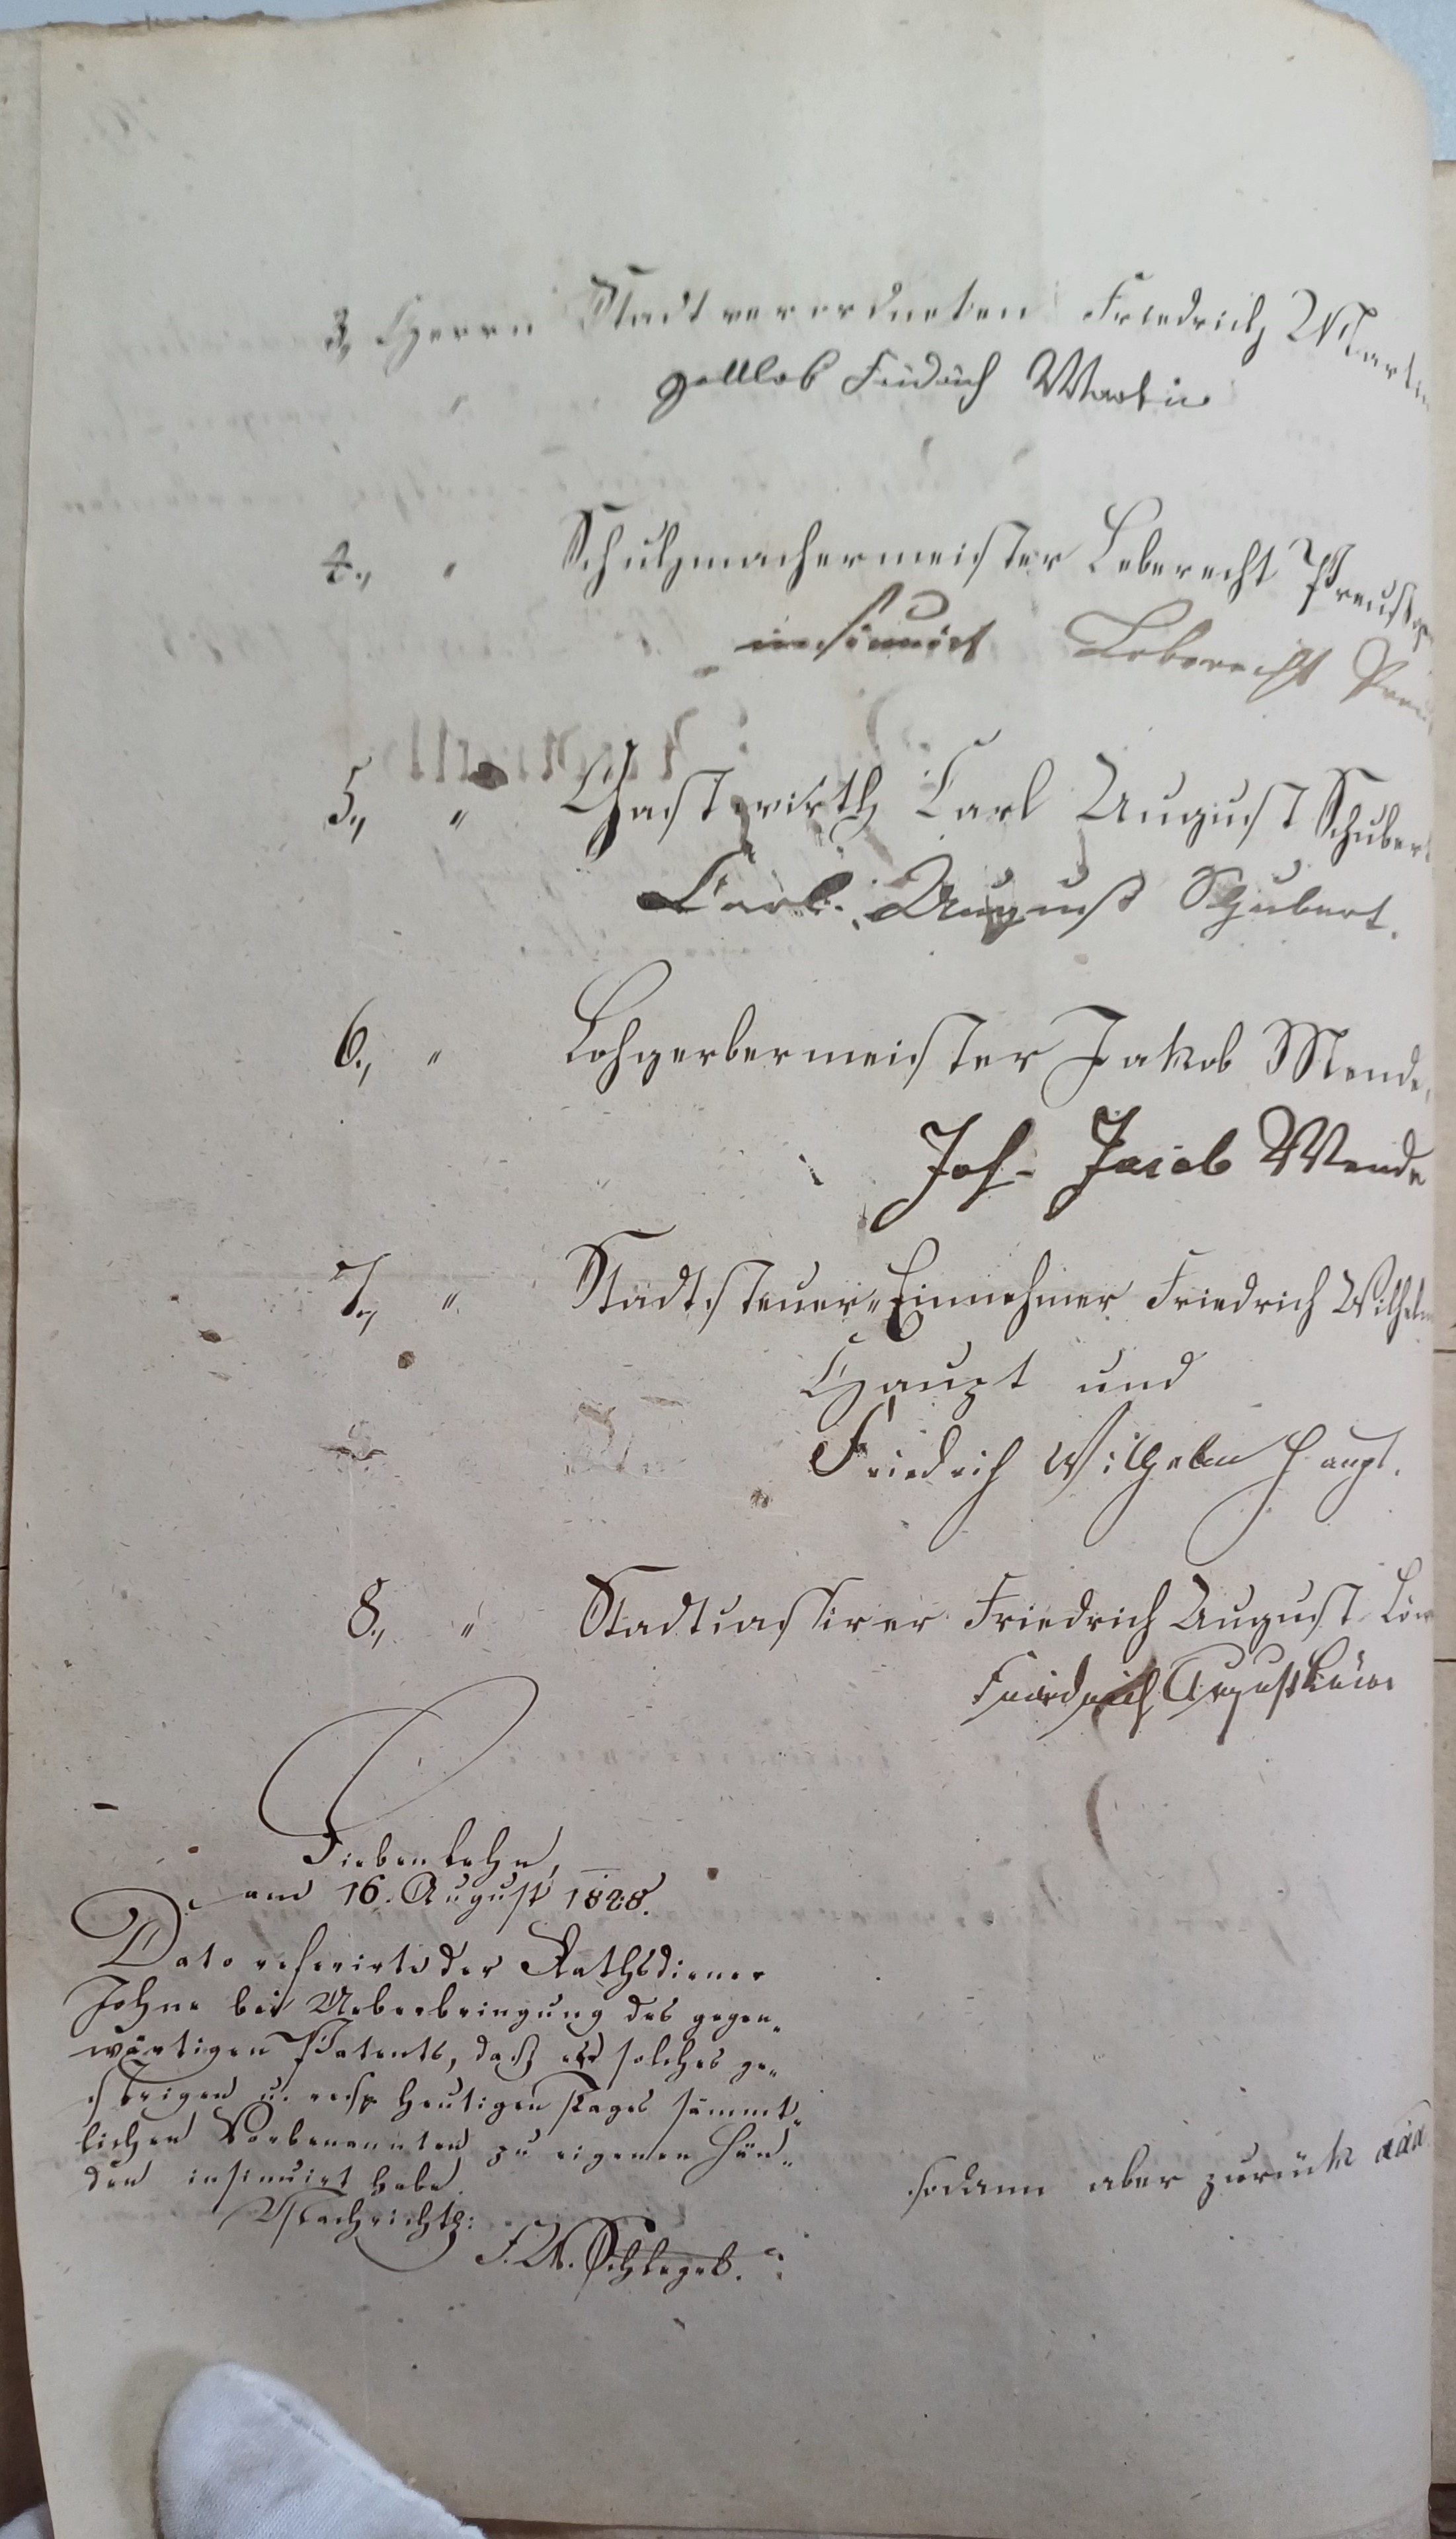 3., Herrn Stadtverordneten Friedrich Martin
Gottlob Friedrich Martin
4., " Schuhmachermeister Leberecht
insinuirt Leberecht
5., " Gastwirth Carl August Schubert
Carl August Schubert.
6., " Lohgerbermeister Jakob Mende,
Joh. Jacob Mende
7., " Stadtsteuer-Einnehmer Friedrich Wilhelm
Haupt und
Friedrich Wilhelm Haupt.
8., " Stadtcassirer Friedrich August
Friedrich August
Siebenlehn,
am 16. August
Dato referirte der Rathsdiener
Johne bei Ueberbringung des gegen-
wärtigen Patents, daß er solches ge-
strigen u. resp. heutigen Tages sämmt-
lichen Vorbenannten zu eigenen Hän-
den insinuirt habe.
Nachrichtl:
F. W. Schlegel.
sodann aber zurück ad